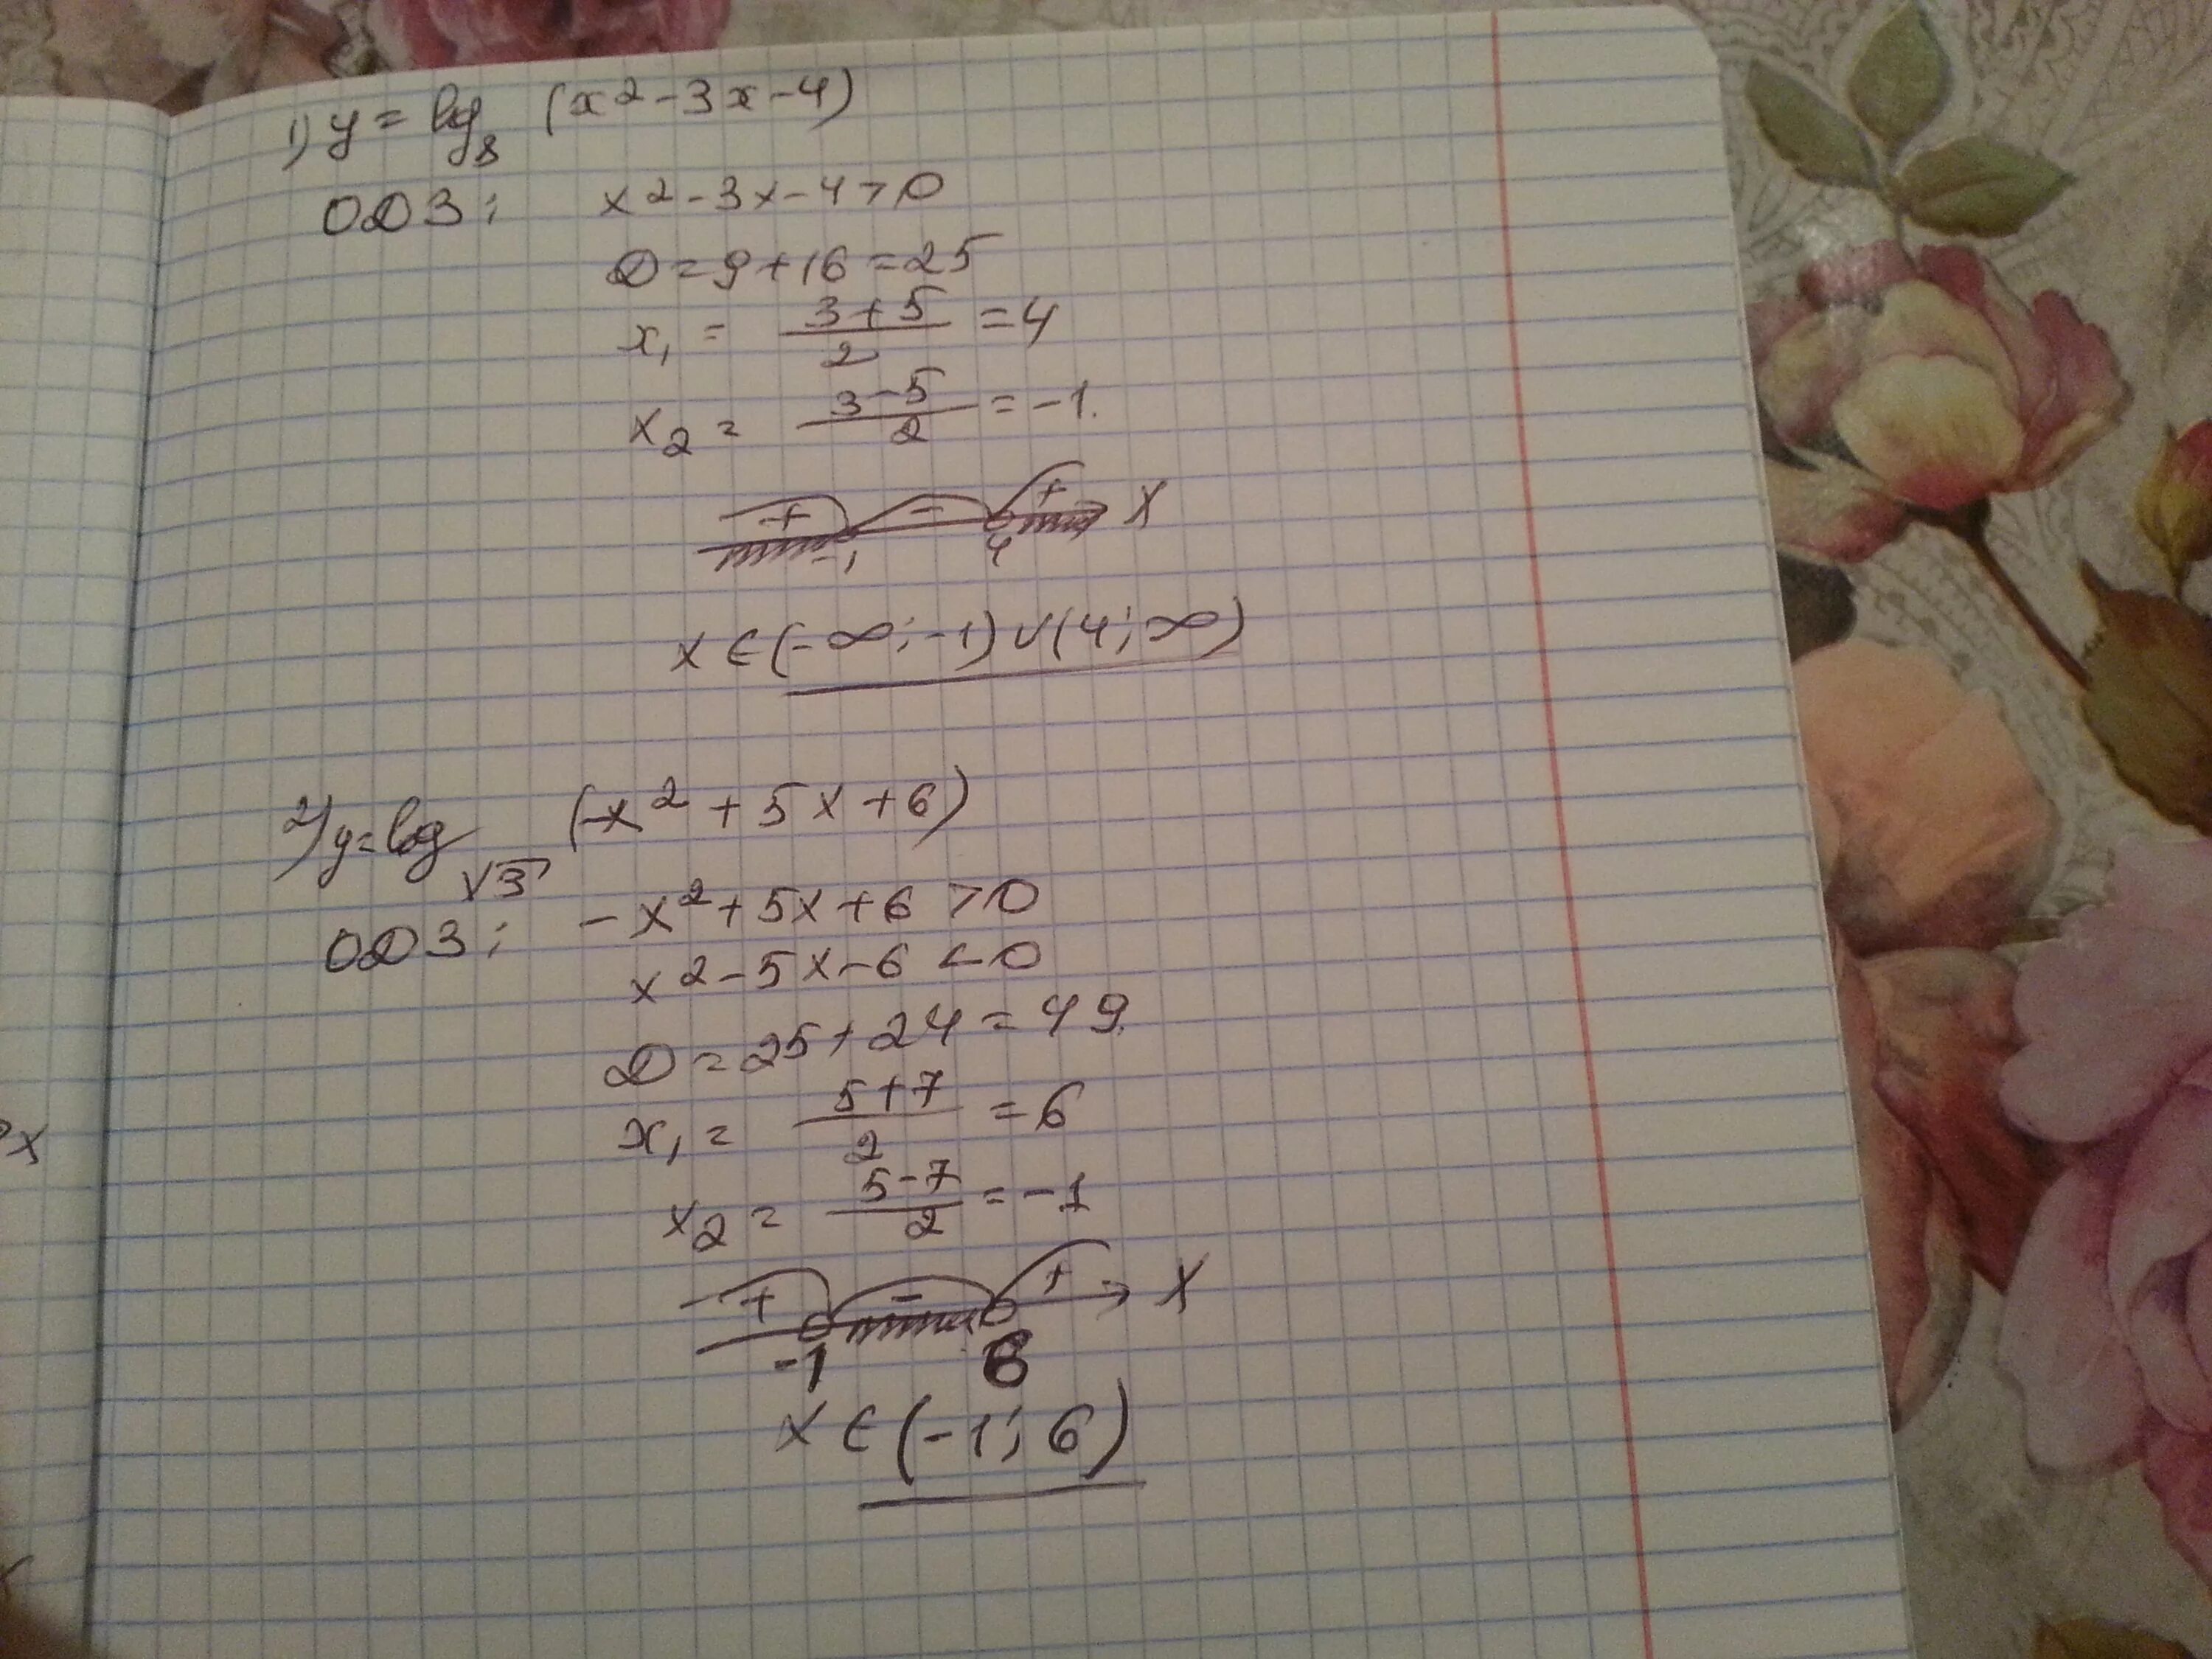 1) y = log₈ (x² - 3x - 4)
ОДЗ: x² - 3x - 4 > 0
D = 9 + 16 = 25
x₁ = (3 + 5)/2 = 4
x₂ = (3 - 5)/2 = -1.
+ - + X
-1 4
x ∈ (-∞; -1) ∪ (4; ∞)
2) y = log_√3 (-x² + 5x + 6)
ОДЗ: -x² + 5x + 6 > 0
x² - 5x - 6 < 0
D = 25 + 24 = 49.
x₁ = (5 + 7)/2 = 6
x₂ = (5 - 7)/2 = -1
+ - + X
-1 6
x ∈ (-1; 6)
x